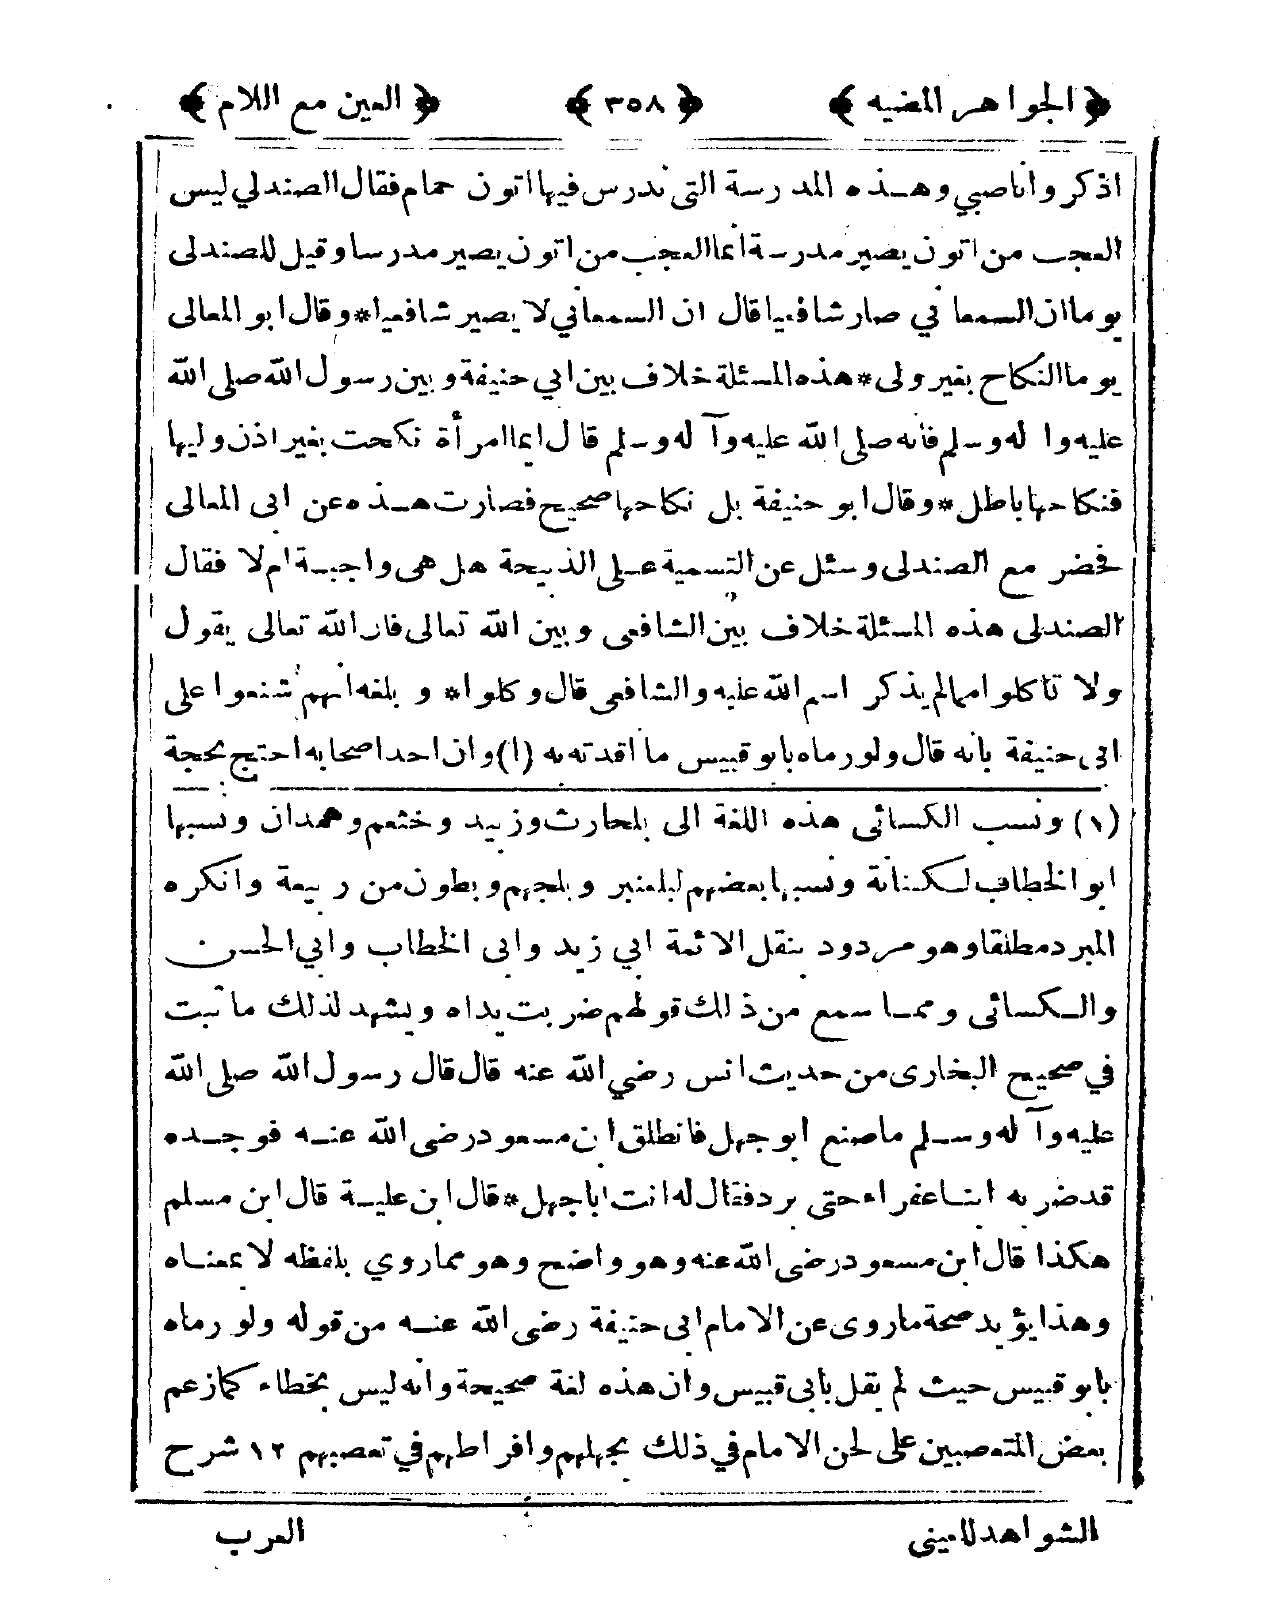 ﴿ الجواهر المضيه ﴾ ﴿ ٣٥٨ ﴾ ﴿ العين مع اللام ﴾
اذكر وانا صبي وهـذه المدرسة التى ندرس فيها اتون حمام فقال الصندلي ليس
العجب من اتون يصير مدرسة انما العجب من اتون يصير مدرسا وقيل للصندلى
يوما ان السمعاني صار شافعيا قال ان السمعاني لا يصير شافعيا * وقال ابو المعالى
يوما النكاح بغير ولى * هذه المسئلة خلاف بين ابي حنيفة وبين رسول الله صلى الله
عليه وآله وسلم فانه صلى الله عليه وآله وسلم قال ايما امرأة نكحت بغير اذن وليها
فنكاحها باطل * وقال ابو حنيفة بل نكاحها صحيح فصارت هـذه عن ابى المعالى
فحضر مع الصندلى وسئل عن التسمية عـلى الذبيحة هل هى واجبـة ام لا فقال
الصندلى هذه المسئلة خلاف بين الشافعى وبين الله تعالى فان الله تعالى يقول
ولا تاكلوا مما لم يذكر اسم الله عليه والشافعى قال وكلوا * و بلغه انهم شنعوا على
ابى حنيفة بانه قال ولو رماه بابو قبيس ما اقدته به (١) وان احدا صحابه احتج بحجة
(١) ونسب الكسائى هذه اللغة الى بلحارث وزبيد وخثعم وهمدان ونسبها
ابو الخطاب لـكنانة ونسبها بعضهم لبلعنبر وبلجهم وبطون من ربيعة وانكره
المبرد مطلقا وهو مردود بنقل الائمة ابي زيد وابى الخطاب وابي الحسن
والـكسائى وممـا سمع من ذلك قولهم ضربت يداه ويشهد لذلك ما ثبت
في صحيح البخارى من حديث انس رضي الله عنه قال قال رسول الله صلى الله
عليه وآله وسـلم ما صنع ابو جهل فانطلق ابن مسعود رضى الله عنـه فوجـده
قد ضربه ابنـا عفراء حتى برد فقال له انت ابا جهل * قال ابن عليـة قال ابن مسلم
هكذا قال ابن مسعود رضى الله عنه وهو واضح وهو مما روي بلفظه لا بمعنـاه
وهذا يؤيد صحة ما روى عن الامام ابى حنيفة رضى الله عنـه من قوله ولو رماه
بابو قبيس حيث لم يقل بابى قبيس وان هذه لغة صحيحة وانه ليس بخطاء كما زعم
بعض المتعصبين على لحن الامام في ذلك بجهلهم وافراطهم في تعصبهم ١٢ شرح
الشواهد للعينى
العرب